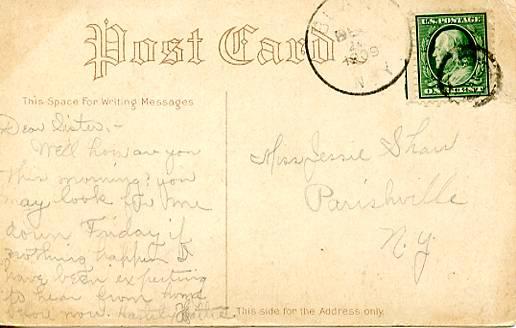 Post Card
DEC
1909
N.Y.
U.S. POSTAGE
ONE CENT
This Space For Writing Messages
Dear Sister,-
Well how are you
this morning? you
may look for me
down Friday if
nothing happen I
have been expecting
to hear from home
before now. Hastily Hattie
Miss Jessie Shaw
Parishville
N.Y.
This side for the Address only.